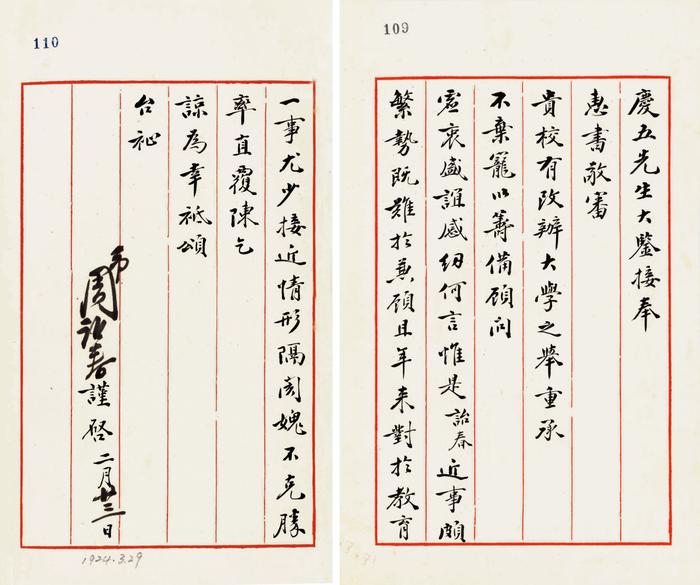 109
慶五先生大鑒接奉
惠書敬審
貴校有改辦大學之舉重承
不棄寵以籌備顧問
虛衷盛誼感紉何言惟是詒春近事頗
繁勢既難於兼顧且年來對於教育
110
一事尤少接近情形隔閡媿不克勝
率直覆陳乞
諒為幸祗頌
台祉
弟周詒春謹啓 二月廿三日
1924.3.29